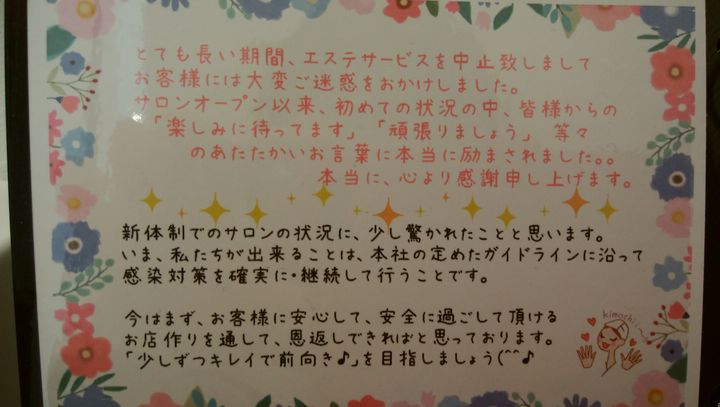 とても長い期間、エステサービスを中止致しまして
お客様には大変ご迷惑をおかけしました。
サロンオープン以来、初めての状況の中、皆様からの
「楽しみに待ってます」「頑張りましょう」 等々
のあたたかいお言葉に本当に励まされました。。
本当に、心より感謝申し上げます。
新体制でのサロンの状況に、少し驚かれたことと思います。
いま、私たちが出来ることは、本社の定めたガイドラインに沿って
感染対策を確実に・継続して行うことです。
今はまず、お客様に安心して、安全に過ごして頂ける
お店作りを通して、恩返しできればと思っております。
「少しずつキレイで前向き♪」を目指しましょう(^^♪
kimochii~